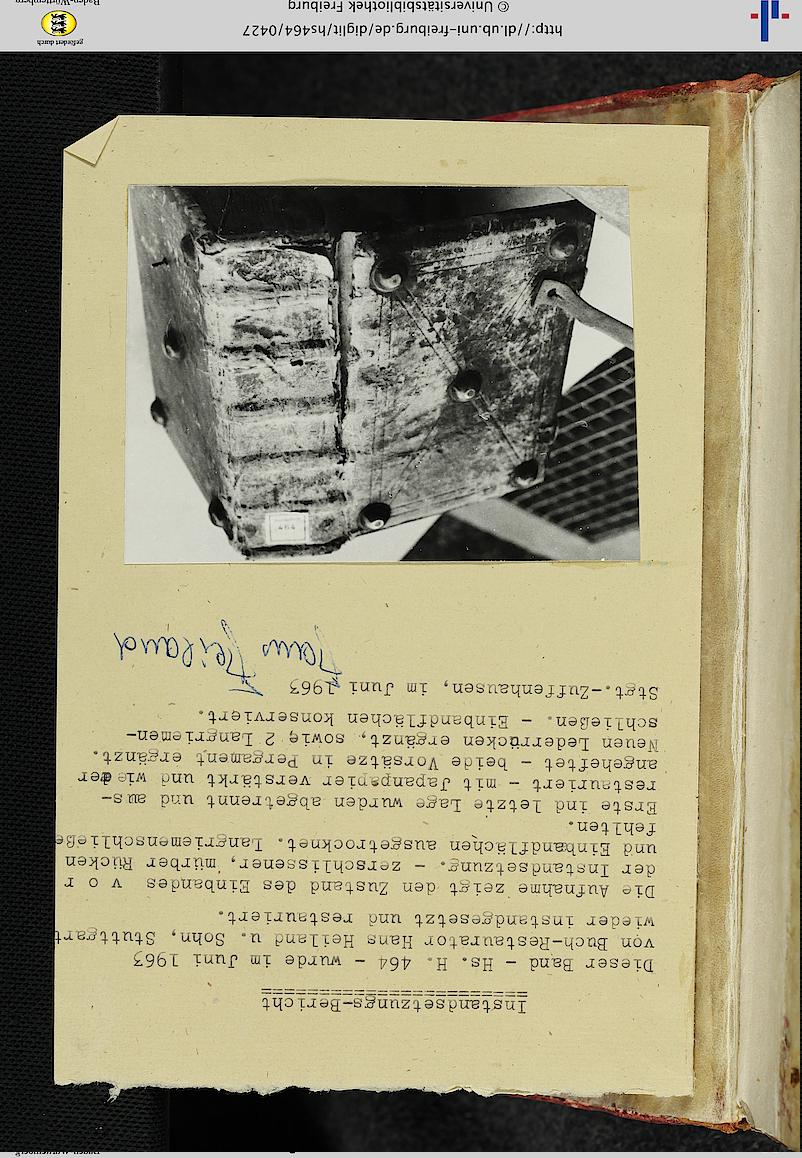 Instandsetzungs-Bericht
=======================
Dieser Band - Hs. H. 464 - wurde im Juni 1963
von Buch-Restaurator Hans Heiland u. Sohn, Stuttgart
wieder instandgesetzt und restauriert.
Die Aufnahme zeigt den Zustand des Einbandes v o r
der Instandsetzung. - zerschlissener, mürber Rücken
und Einbandflächen ausgetrocknet. Langriemenschließe
fehlten.
Erste ind letzte Lage wurden abgetrennt und aus-
restauriert - mit Japanpapier verstärkt und wieder
angeheftet - beide Vorsätze in Pergament ergänzt.
Neuen Lederrücken ergänzt, sowie 2 Langriemen-
schließen. - Einbandflächen konserviert.
Stgt.-Zuffenhausen, im Juni 1963
Hans Heiland
http://dl.ub.uni-freiburg.de/diglit/hs464/0427
© Universitätsbibliothek Freiburg
gefördert durch
Baden-Württemberg